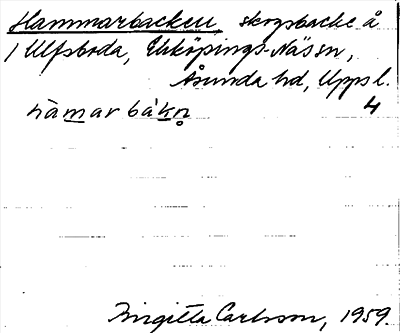 Hammarbacken, skogsbacke å
1 Ulfsboda, Enköpings-Näs sn,
Åsunda hd, Upps l.
hàmar bákn̥ 4
Birgitta Carlsson, 1959.